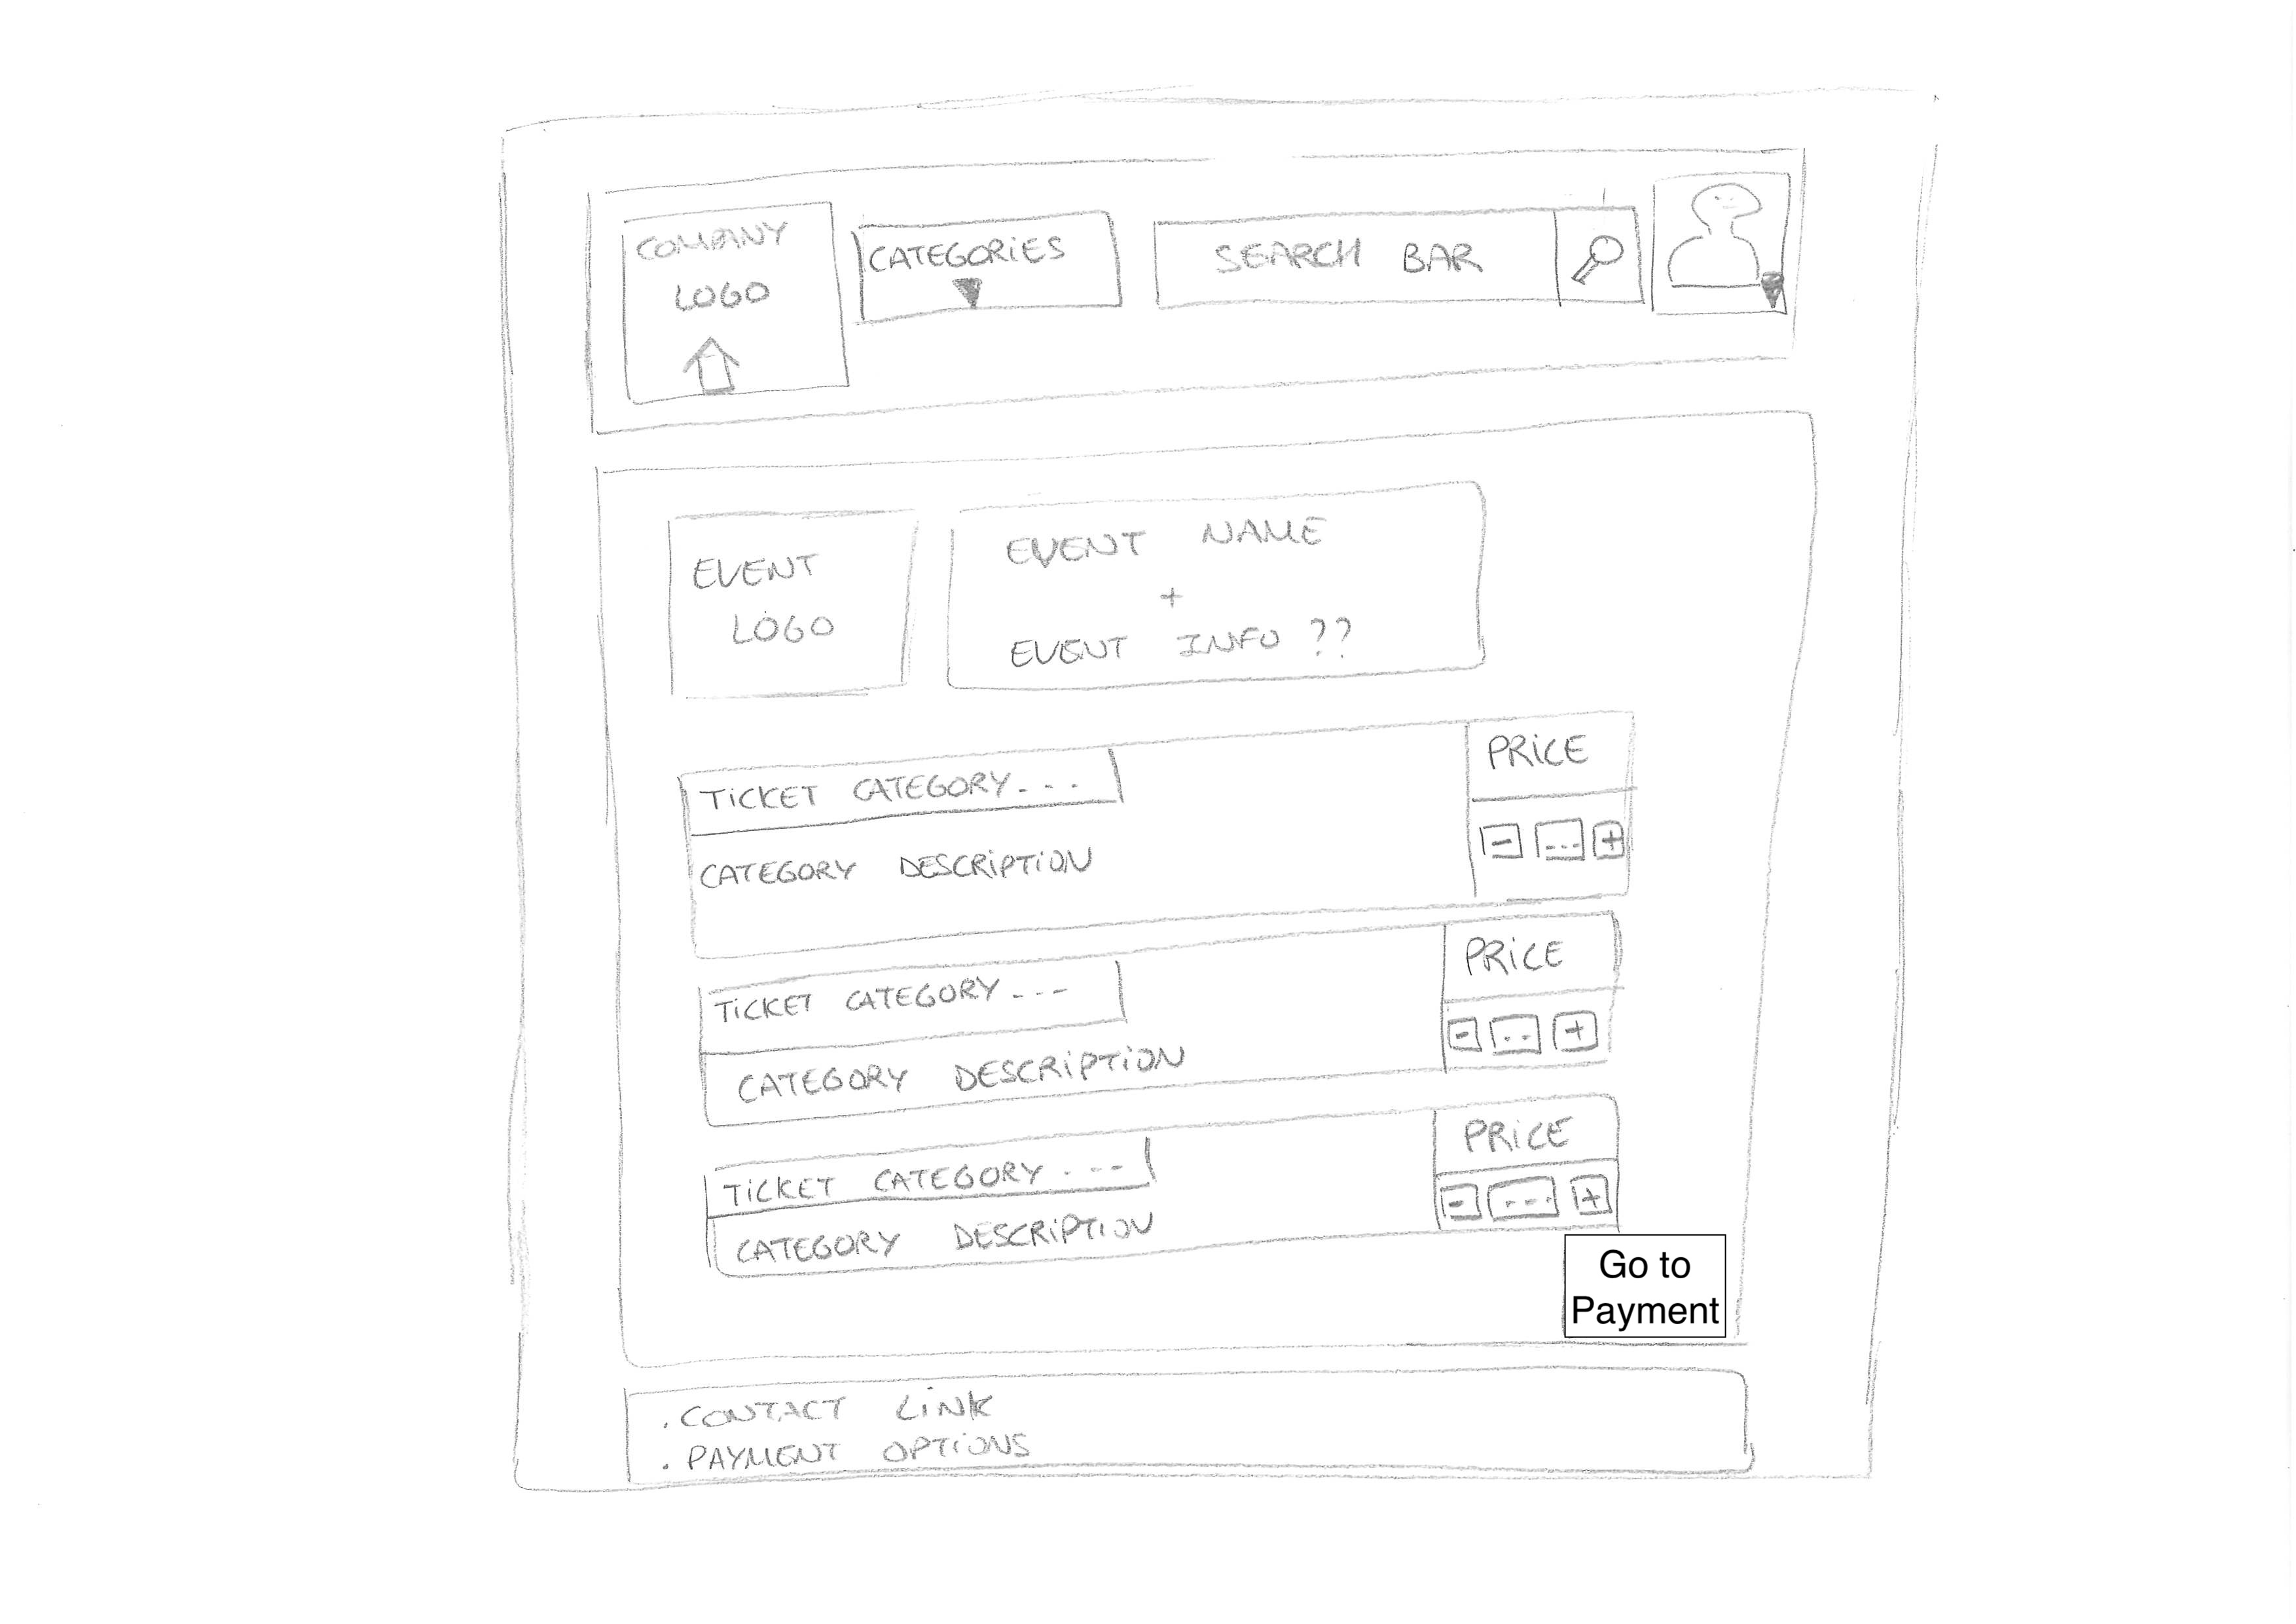 COMPANY
LOGO
CATEGORIES
SEARCH BAR
EVENT
LOGO
EVENT NAME
+
EVENT INFO ??
TiCKET CATEGORY---
PRiCE
- --- +
CATEGORY DESCRiPTiON
TiCKET CATEGORY---
PRiCE
- -- +
CATEGORY DESCRiPTiON
TiCKET CATEGORY ---
PRiCE
- --- +
CATEGORY DESCRiPTiON
Go to
Payment
. CONTACT LiNK
. PAYMENT OPTiONS